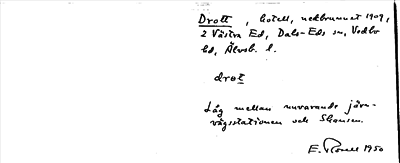 Drott, hotell, nedbrunnet 1909,
2 Västra Ed, Dals-Eds sn, Vedbo
hd, Älvsb. l.
drot
Låg mellan nuvarande järn-
vägsstationen och Skansen.
E. 1950